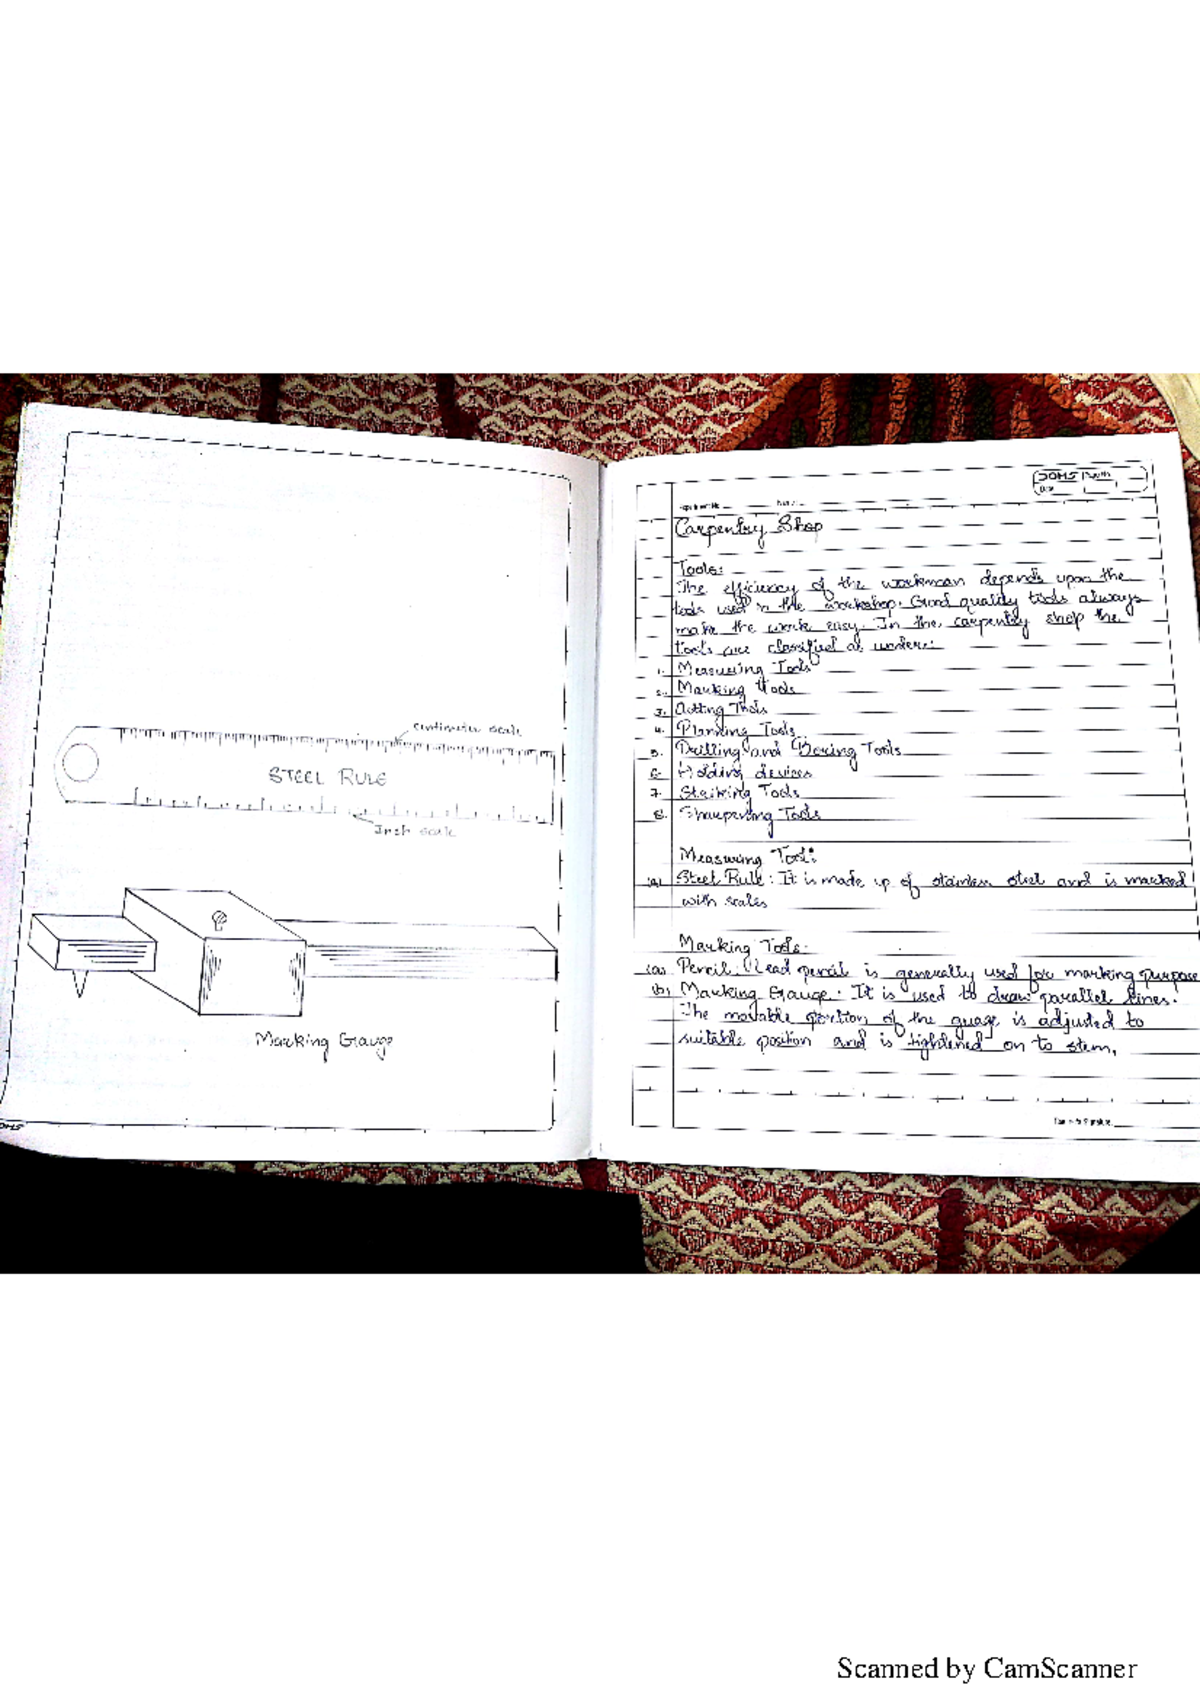 centimeter scale
STEEL RULE
Inch scale
Marking Gauge
DOMS
Date
Carpentry Shop
Tools:
The efficiency of the workman depends upon the
tools used in the workshop. Good quality tools always
make the work easy. In the carpentry shop the
tools are classified as under:
1. Measuring Tools
2. Marking Tools
3. Cutting Tools
4. Planning Tools
5. Drilling and Boring Tools
6. Holding devices
7. Staiking Tools
8. Sharpening Tools
Measuring Tool:
(a) Steel Rule: It is made up of stainless steel and is marked
with scales
Marking Tools:
(a) Pencil: Lead pencil is generally used for marking purpose
(b) Marking Gauge: It is used to draw parallel lines.
The movable portion of the guage is adjusted to
suitable position and is tightened on to stem.
Scanned by CamScanner